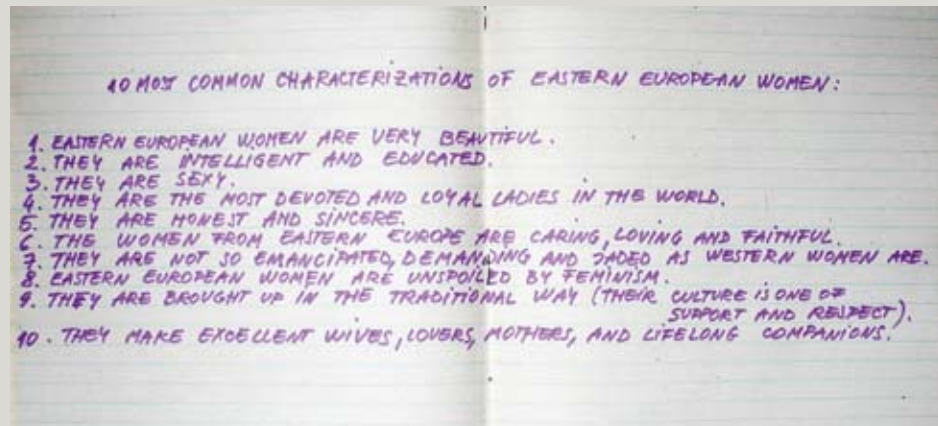 10 MOST COMMON CHARACTERIZATIONS OF EASTERN EUROPEAN WOMEN:
1. EASTERN EUROPEAN WOMEN ARE VERY BEAUTIFUL.
2. THEY ARE INTELLIGENT AND EDUCATED.
3. THEY ARE SEXY.
4. THEY ARE THE MOST DEVOTED AND LOYAL LADIES IN THE WORLD.
5. THEY ARE HONEST AND SINCERE.
6. THE WOMEN FROM EASTERN EUROPE ARE CARING, LOVING AND FAITHFUL.
7. THEY ARE NOT SO EMANCIPATED, DEMANDING AND JADED AS WESTERN WOMEN ARE.
8. EASTERN EUROPEAN WOMEN ARE UNSPOILED BY FEMINISM.
9. THEY ARE BROUGHT UP IN THE TRADITIONAL WAY (THEIR CULTURE IS ONE OF
SUPPORT AND RESPECT).
10. THEY MAKE EXCELLENT WIVES, LOVERS, MOTHERS, AND LIFELONG COMPANIONS.